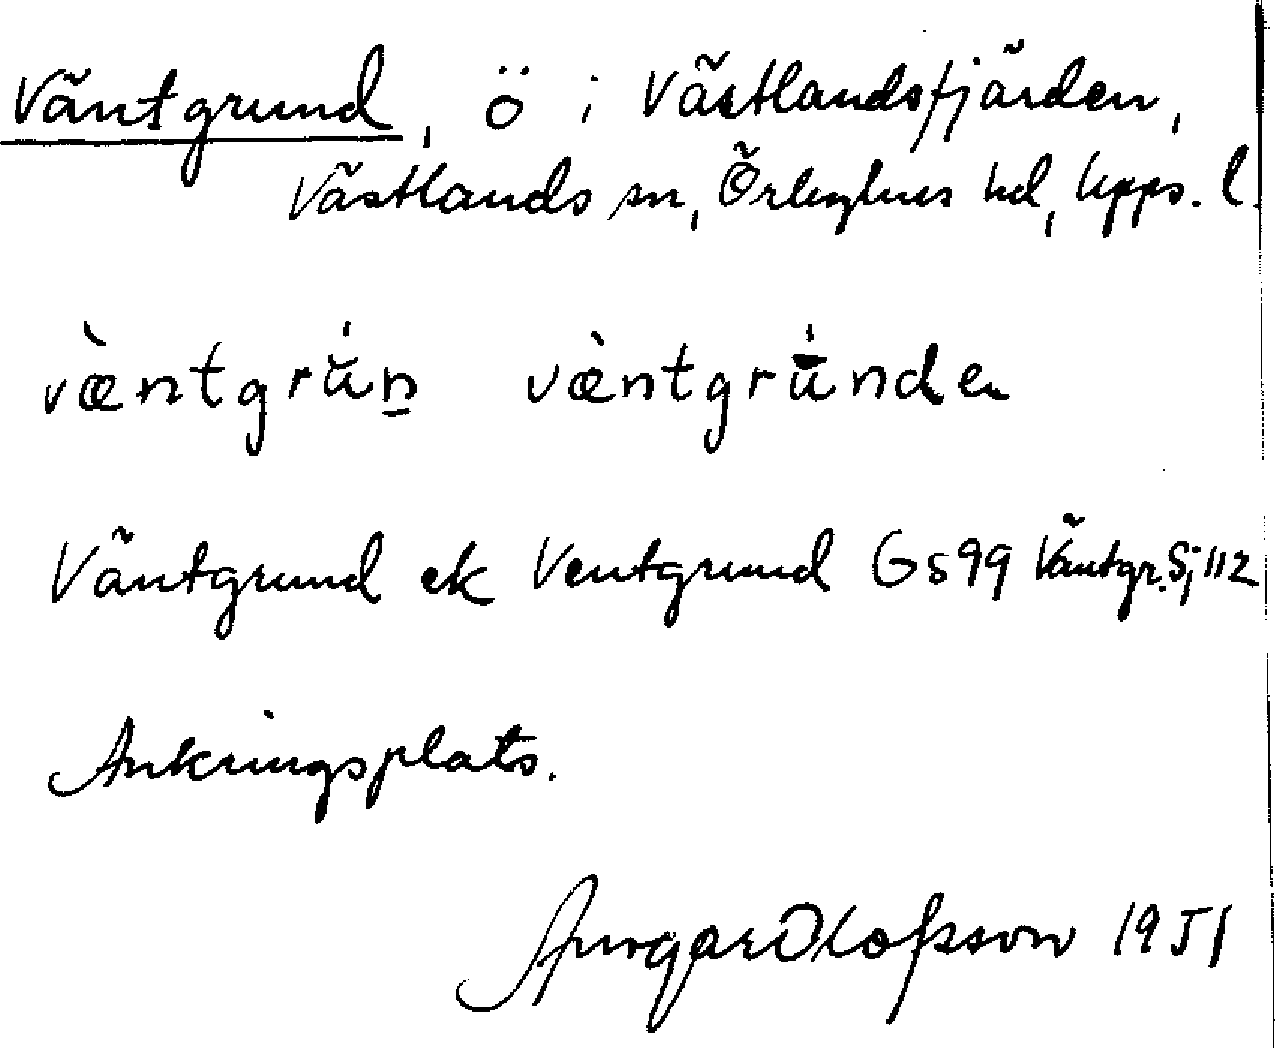 Väntgrund, ö i Västlandsfjärden,
Västlands sn, Örbyhus hd, Upps. l.
væ̀ntgrŭ̍n̲ væ̀ntgrŭ̍nden
Väntgrund ek Ventgrund Gs99 Väntgr. Sj 112
Ankringsplats.
Ansgar Olofsson 1951